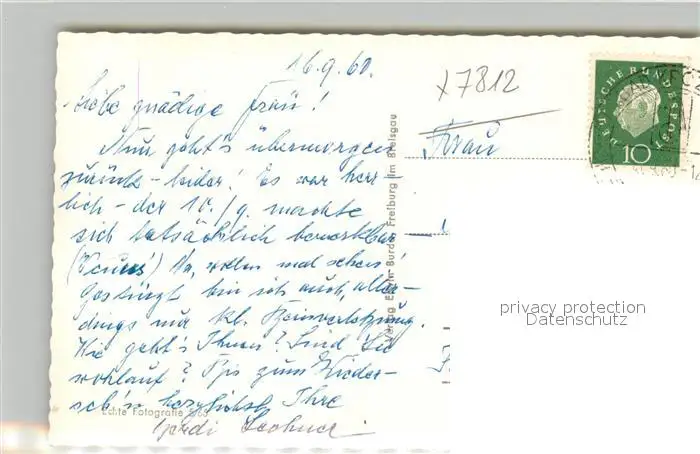 16.9.60.
Liebe gnädige Frau!
Nun geht's übermorgen
zurück - leider! Es war herr-
lich - der 10./9. machte
sich tatsächlich bemerkbar
(Venus!) Na, wollen mal sehen!
Gestürzt bin ich auch, aller-
dings nur kl. Knieverletzung.
Wie geht's Ihnen? Sind Sie
wohlauf? Bis zum Wieder-
seh'n herzlichst Ihre
Gerdi
Echte Fotografie
Verlag Erwin Burda, Freiburg im Breisgau
x7812
Frau
DEUTSCHE BUNDESPOST
10
privacy protection
Datenschutz